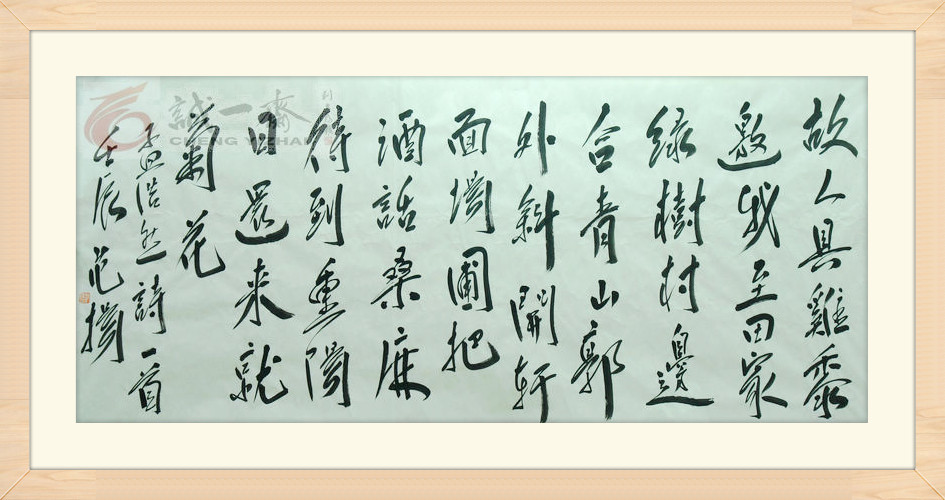 故人具雞黍
邀我至田家
綠樹村邊
合青山郭
外斜開軒
面場圃把
酒話桑麻
待到重陽
日還來就
菊花
孟浩然詩一首
壬辰范揚
誠一齋
CHENG YIZHAI